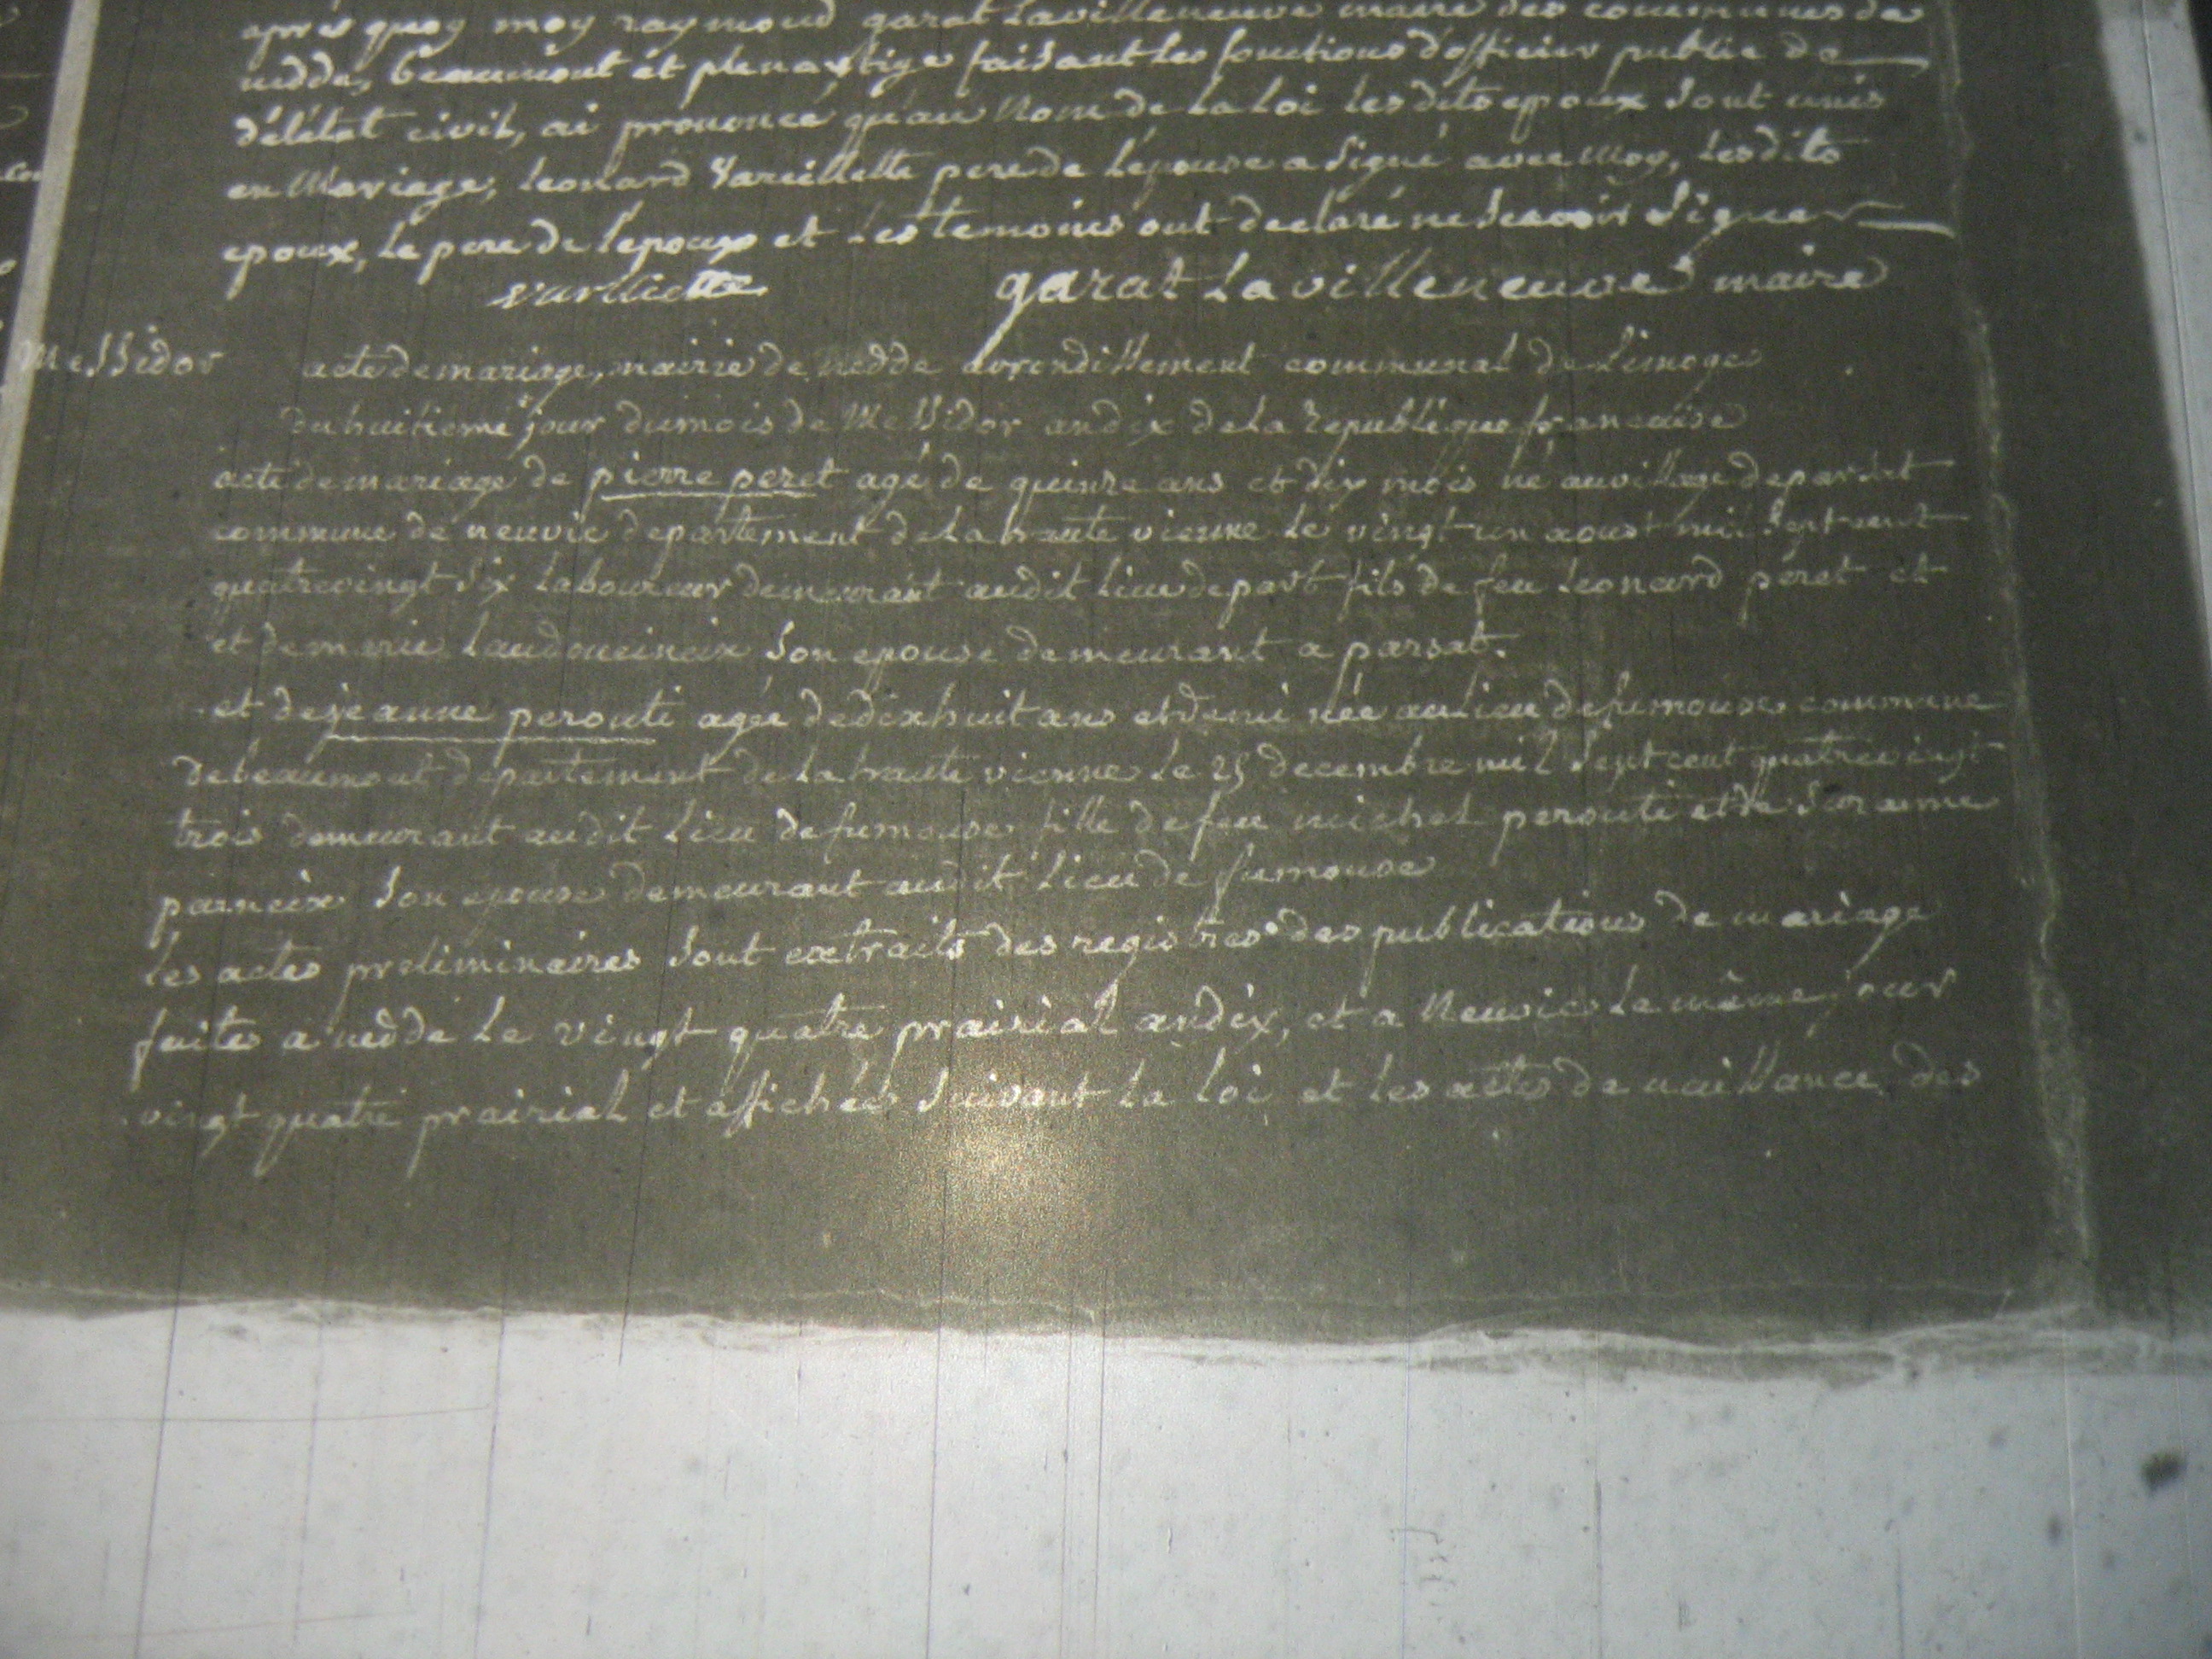 après quoy moy raymond garat Lavilleneuve maire des communes de
nedde, beaumont et plenartige faisant les fonctions d'officier public de
d'élétat civil, ai prononcé qu'au Nom de la loi les dits epoux sont unis
en Mariage, leonard Vareillette pere de l'epouse a signé avec Moy, les dits
epoux, le pere de l'epoux et les temoins ont declaré ne scavoir signer
garat Lavilleneuve maire
Messidor
acte de mariage, mairie de nedde arrondissement communal de Limoges
du huitieme jour du mois de Messidor an dix de la republique francaise
acte de mariage de pierre peret agé de quinze ans et dix mois né au village de
commune de neuvic departement de la haute vienne le vingt un aoust mil sept cent
quatrevingt six laboureur demeurant audit lieu de fils de feu leonard peret et
et de marie son epouse demeurant a parsat.
et de jeanne perouti agée de dixhuit ans et demi née au lieu de fumouse commune
de beaumont departement de la haute vienne le 25 decembre mil sept cent quatrevingt
trois demeurant audit lieu de fumouse fille de feu michel perouti et de
parneix son epouse demeurant audit lieu de fumouse
les actes preliminaires sont extraits des registres des publications de mariage
faites a nedde le vingt quatre prairial an dix, et a Neuvic le même jour
vingt quatre prairial et affichés suivant la loi et les actes de naissance des